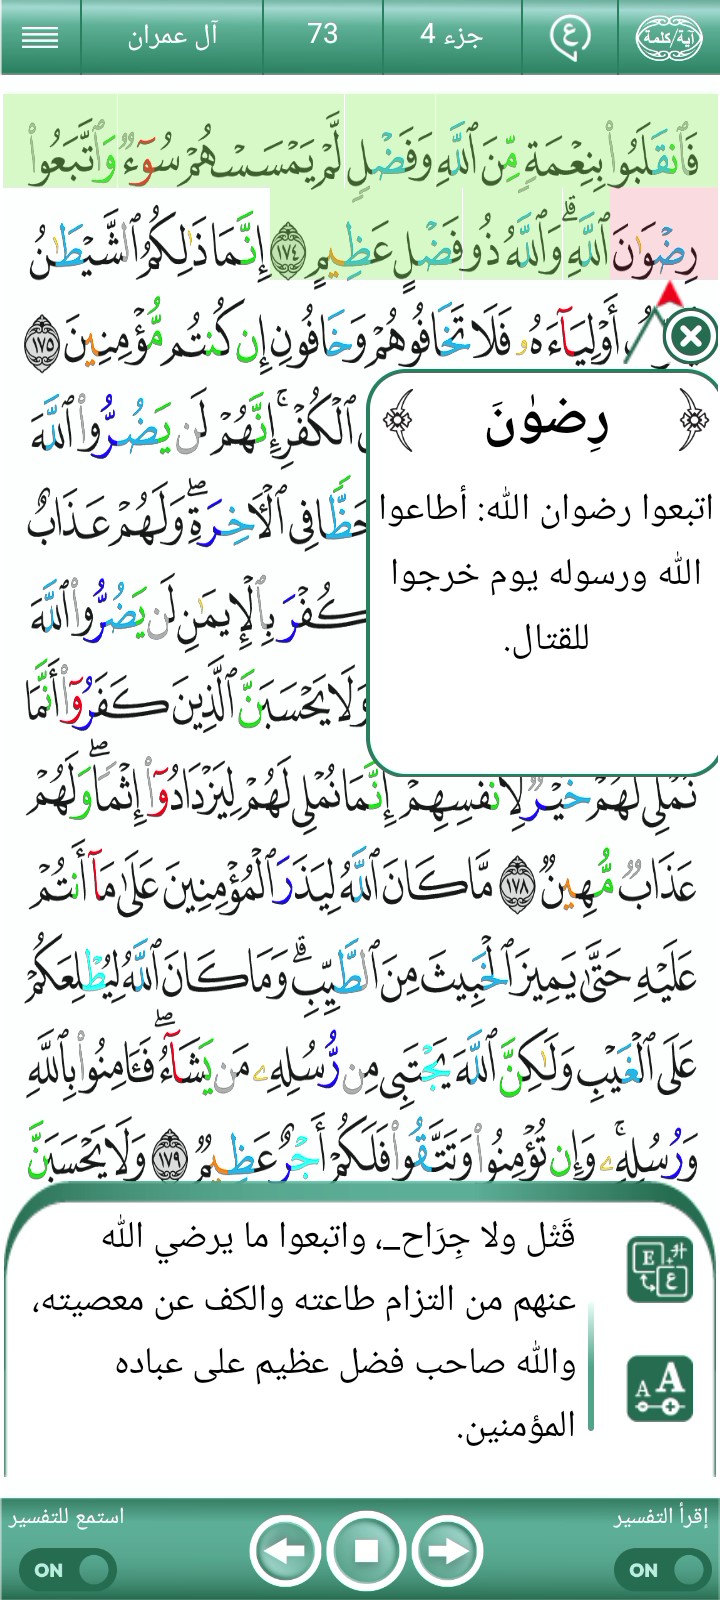 آية/كلمة
ع
جزء 4
73
آل عمران
فَٱنقَلَبُوا۟ بِنِعْمَةٍ مِّنَ ٱللَّهِ وَفَضْلٍ لَّمْ يَمْسَسْهُمْ سُوٓءٌ وَٱتَّبَعُوا۟
رِضْوَٰنَ ٱللَّهِ ۗ وَٱللَّهُ ذُو فَضْلٍ عَظِيمٍ ١٧٤ إِنَّمَا ذَٰلِكُمُ ٱلشَّيْطَٰنُ
أَوْلِيَآءَهُۥ فَلَا تَخَافُوهُمْ وَخَافُونِ إِن كُنتُم مُّؤْمِنِينَ ١٧٥
ٱلْكُفْرِ ۚ إِنَّهُمْ لَن يَضُرُّوا۟ ٱللَّهَ
حَظًّا فِى ٱلْءَاخِرَةِ ۖ وَلَهُمْ عَذَابٌ
ٱلْكُفْرَ بِٱلْإِيمَٰنِ لَن يَضُرُّوا۟ ٱللَّهَ
وَلَا يَحْسَبَنَّ ٱلَّذِينَ كَفَرُوٓا۟ أَنَّمَا
نُمْلِى لَهُمْ خَيْرٌ لِّأَنفُسِهِمْ ۚ إِنَّمَا نُمْلِى لَهُمْ لِيَزْدَادُوٓا۟ إِثْمًا ۖ وَلَهُمْ
عَذَابٌ مُّهِينٌ ١٧٨ مَّا كَانَ ٱللَّهُ لِيَذَرَ ٱلْمُؤْمِنِينَ عَلَىٰ مَآ أَنتُمْ
عَلَيْهِ حَتَّىٰ يَمِيزَ ٱلْخَبِيثَ مِنَ ٱلطَّيِّبِ ۗ وَمَا كَانَ ٱللَّهُ لِيُطْلِعَكُمْ
عَلَى ٱلْغَيْبِ وَلَٰكِنَّ ٱللَّهَ يَجْتَبِى مِن رُّسُلِهِۦ مَن يَشَآءُ ۖ فَـَٔامِنُوا۟ بِٱللَّهِ
وَرُسُلِهِۦ ۚ وَإِن تُؤْمِنُوا۟ وَتَتَّقُوا۟ فَلَكُمْ أَجْرٌ عَظِيمٌ ١٧٩ وَلَا يَحْسَبَنَّ
رِضْوَٰنَ
اتبعوا رضوان الله: أطاعوا
الله ورسوله يوم خرجوا
للقتال.
قَتْل ولا جِرَاح_، واتبعوا ما يرضي الله
عنهم من التزام طاعته والكف عن معصيته،
والله صاحب فضل عظيم على عباده
المؤمنين.
E ع
A A
إقرأ التفسير
ON
استمع للتفسير
ON